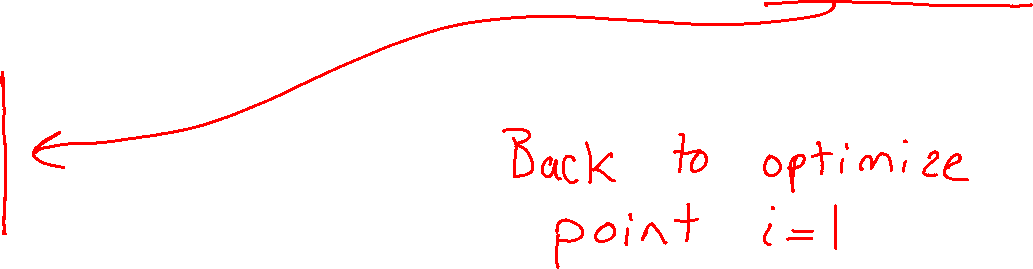 Back to optimize
point i=1